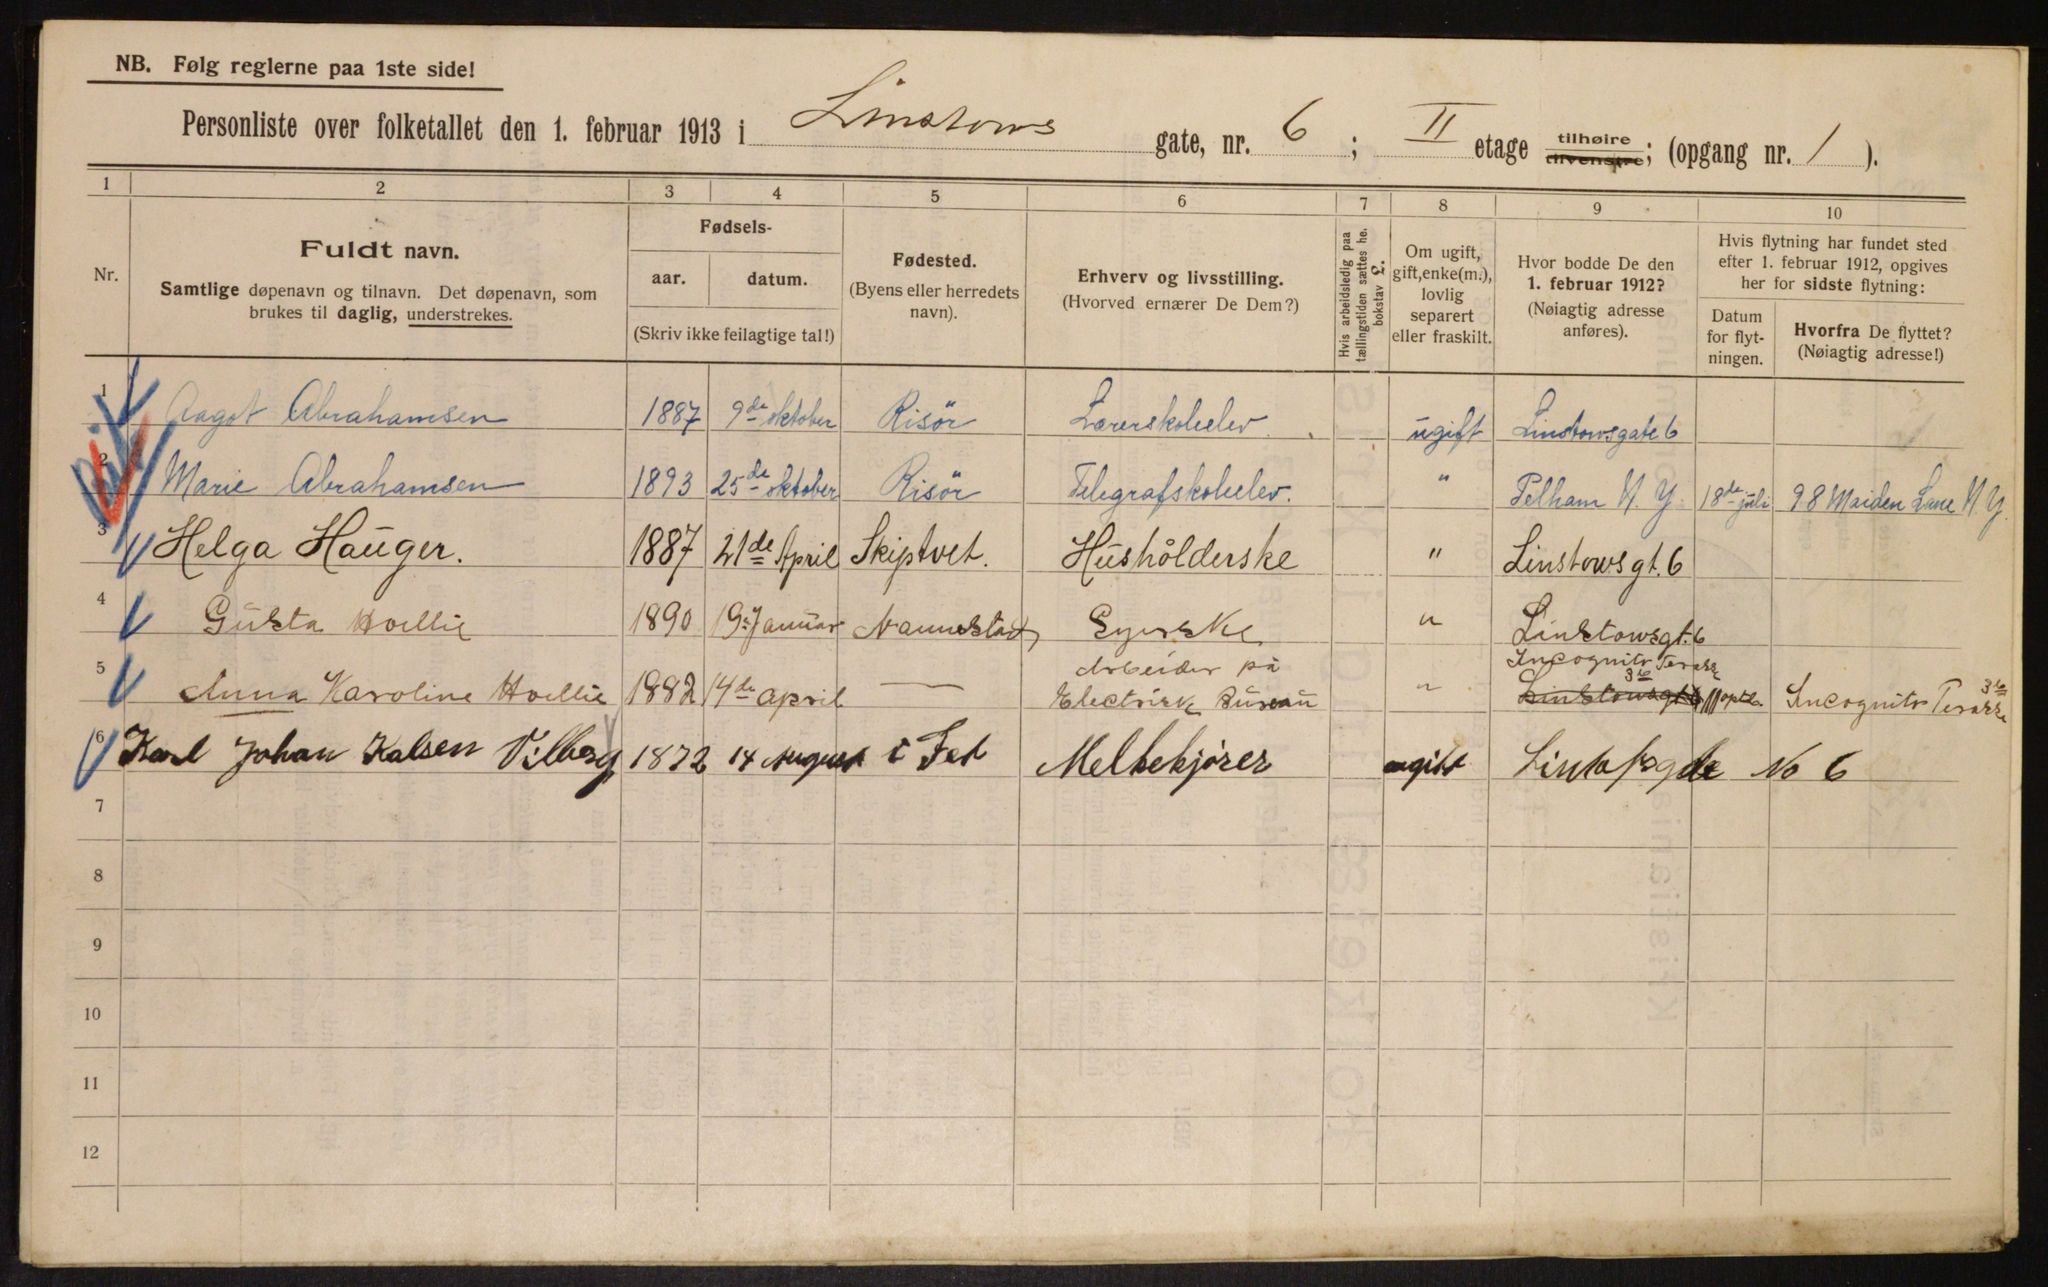 NB. Følg reglerne paa 1ste side!
Personliste over folketallet den 1. februar 1913 i Linstows gate, nr. 6; II etage tilhøire tilvenstre; (opgang nr. 1).
1 2 3 4 5 6 7 8 9 10
Nr.
Fuldt navn.
Samtlige døpenavn og tilnavn. Det døpenavn, som
brukes til daglig, understrekes.
Fødsels-
aar. datum.
(Skriv ikke feilagtige tal!)
Fødested.
(Byens eller herredets
navn).
Erhverv og livsstilling.
(Hvorved ernærer De Dem?)
Hvis arbeidsledig paa
tællingstiden sættes he.
bokstav L.
Om ugift,
gift, enke(m.),
lovlig
separert
eller fraskilt.
Hvor bodde De den
1. februar 1912?
(Nøiagtig adresse
anføres).
Hvis flytning har fundet sted
efter 1. februar 1912, opgives
her for sidste flytning:
Datum
for flyt-
ningen.
Hvorfra De flyttet?
(Nøiagtig adresse!)
1 Aagot Abrahamsen 1887 9de oktober Risör Lærerskoleelev ugift Linstowsgate 6
2 Marie Abrahamsen 1893 25de oktober Risör Telegrafskoleelev. " Pelham N. Y. 18de juli 98 Maiden Lane N. Y.
3 Helga Hauger. 1887 21de April Skiptvet. Husholderske " Linstowsgt. 6
4 Gusta Hvellie 1890 19. Januar Nannestad Syerske " Linstowsgt. 6
5 Anna Karoline Hvellie 1882 14de april — Arbeider på " Incognito Terasse 3b
Electrisk Bureau Linstowsgt 6 Incognito Terasse 3b
6 Karl Johan Kalsen Vilberg 1872 14 August i Fet Melkekjører ugift No 6
7
8
9
10
11
12